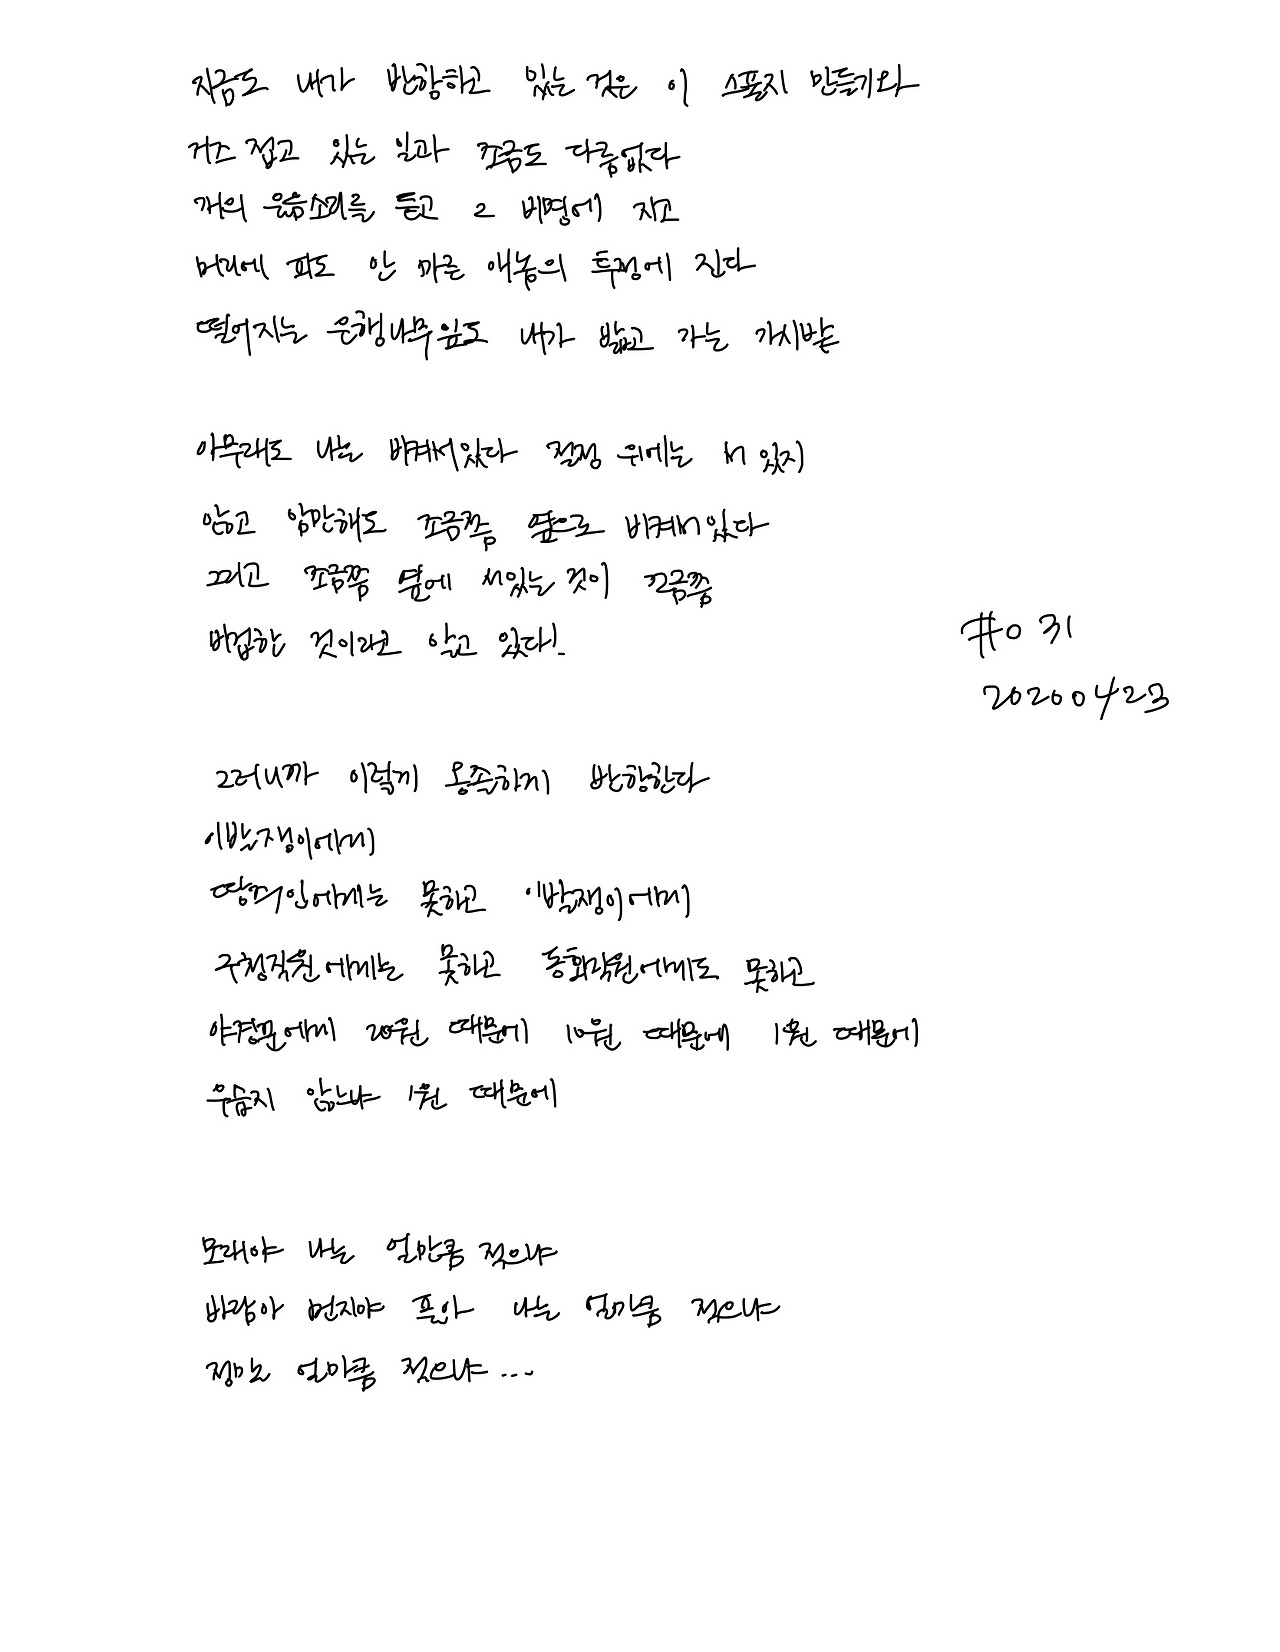 지금도 내가 반항하고 있는 것은 이 스폰지 만들기와
거즈 접고 있는 일과 조금도 다름없다
개의 울음소리를 듣고 그 비명에 지고
머리에 피도 안 마른 애놈의 투정에 진다
떨어지는 은행나무잎도 내가 밟고 가는 가시밭
아무래도 나는 비켜서있다 절정 위에는 서 있지
않고 암만해도 조금쯤 옆으로 비켜서있다
그리고 조금쯤 옆에 서있는 것이 조금쯤
비겁한 것이라고 알고 있다!
#031
20200423
그러니까 이렇게 옹졸하게 반항한다
이발쟁이에게
땅주인에게는 못하고 이발쟁이에게
구청직원에게는 못하고 동회직원에게도 못하고
야경꾼에게 20원 때문에 10원 때문에 1원 때문에
우습지 않느냐 1원 때문에
모래야 나는 얼만큼 적으냐
바람아 먼지야 풀아 나는 얼마큼 적으냐
정말 얼마큼 적으냐...